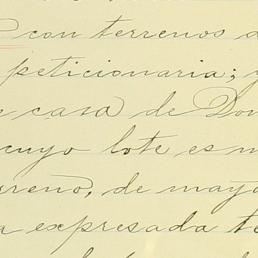 con terrenos d
peticionaria; y
casa de Don
cuyo lote es m
reno, de mayo
a expresada te